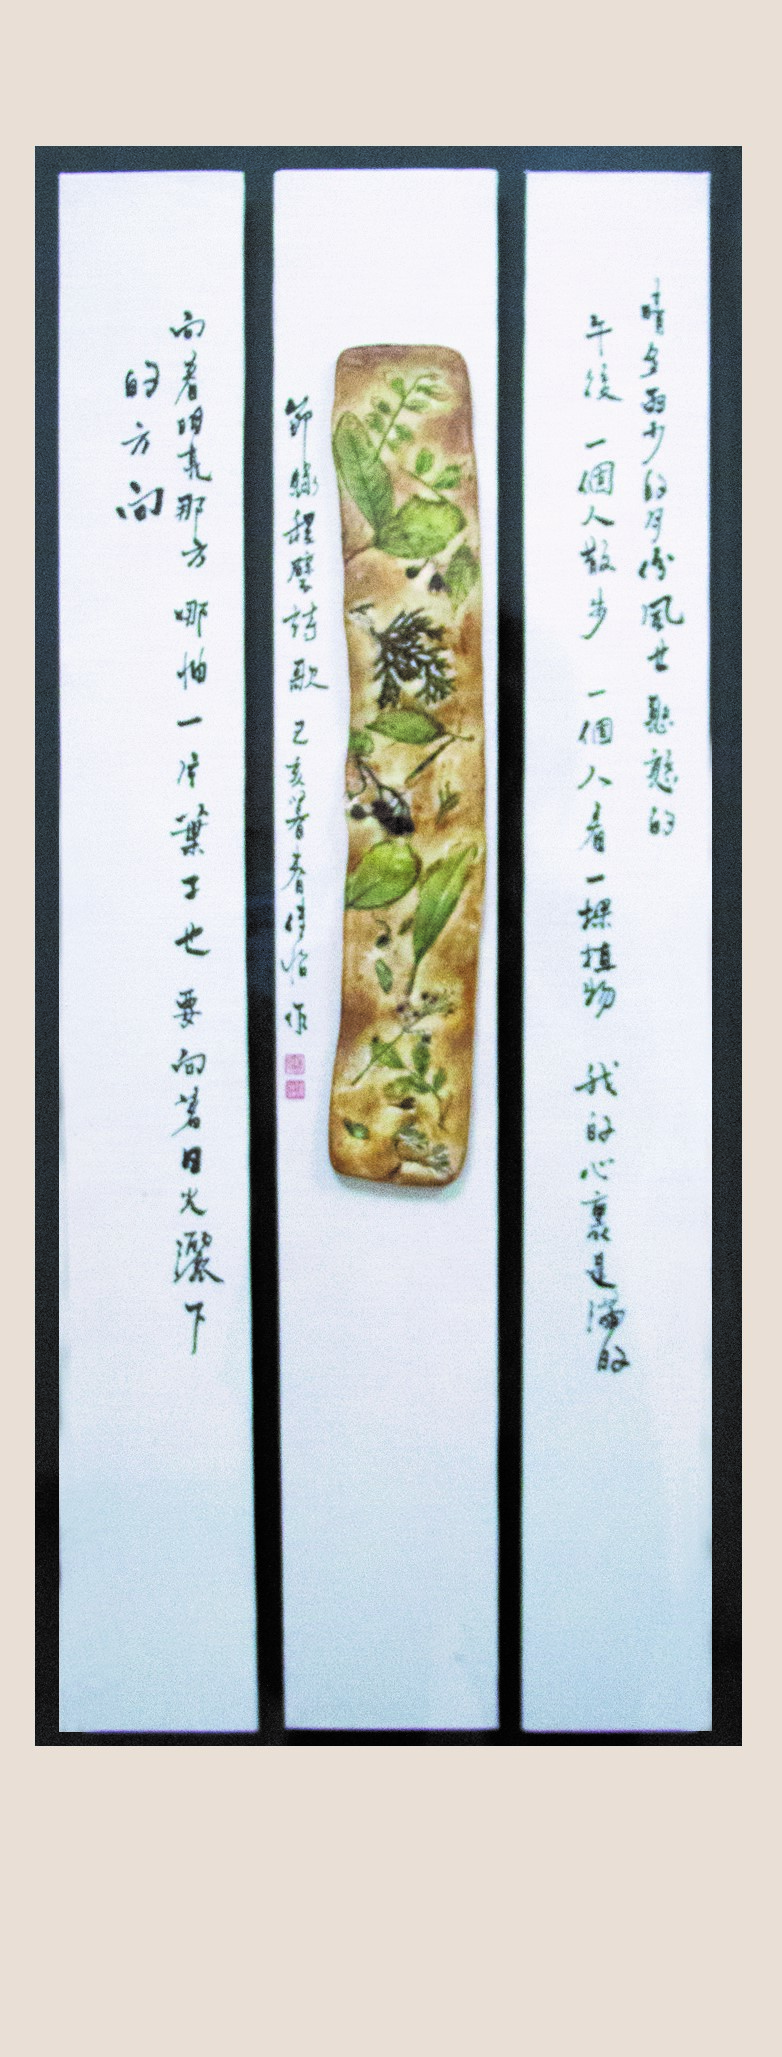 晴多雨少的月份風也懸懸的
午後 一個人散步 一個人看一棵植物 我的心裏是滿的
節錄程璧詩歌 己亥署春倩怡作
向着明亮那方 哪怕一片葉子也要向着日火灑下
的方向